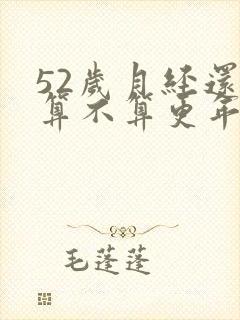 52歲月經還
算不算更年
毛蓬蓬